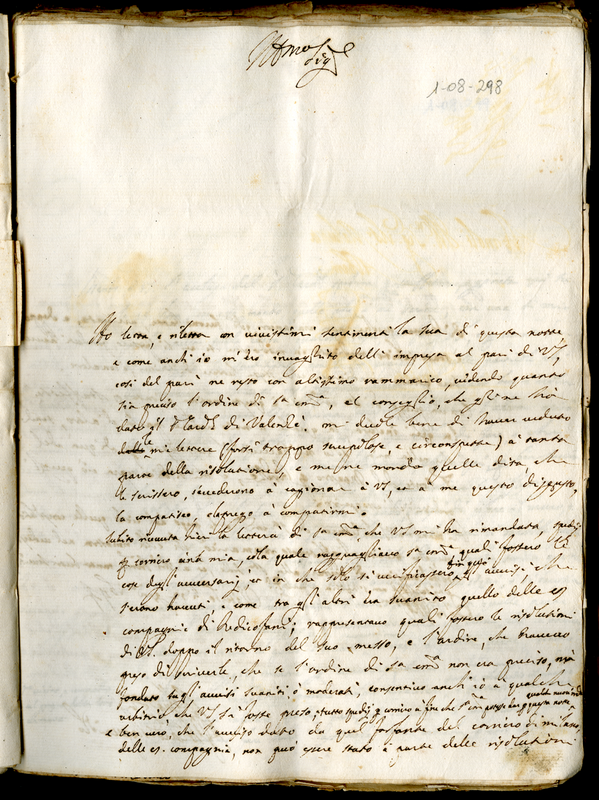 Ill.mo Sig.re
1-08-298
Ho letta, e riletta con vivissimi sentimenti la sua di questa notte
e come anch'io m'ero invaghito dell'impresa al pari di VS,
così del pari ne resto con altissimo rammarico, vedendo quanto
sia preciso l'ordine di Sa em.za, et il conseglio, che gli ne ha
dato il S.r Card.l di Valenzè, mi duole bene di haver veduto
le mie lettere (forsi troppo scrupolose, e circonspette) à tanta
parte della risolutione, e me ne mordo quelle dita, che
le scrissero, à cagionar à VS, et à me questo disgusto,
la compatisco, e la prego à compatirmi.
Subito ricevuta hieri la lettera di Sa em.za, che VS mi ha rimandata, spedij
un corriero con la mia, colla quale ragguagliavo Sa em.za quali fossero le
cose degli avversarij, et in che solo si verificassero gli avvisi, che
si erono havuti, e come tra gli altri era svanito quello delle
compagnie di Radicofani, rappresentavo quali fossero le risolutioni
di VS. doppo il ritorno del suo messo, e l'ardire, che havevo
preso di scriverle, che se l'ordine di Sa em.za non era preciso, mà
fondato sugli avvisi svaniti, ò moderati, consentivo anch'io à qualche
arbitrio, che VS si fosse preso,
e ben vero, che l'avviso dato da quel forfante del corriero di Milano,
delle compagnie, non può essere stato à parte delle risolutioni